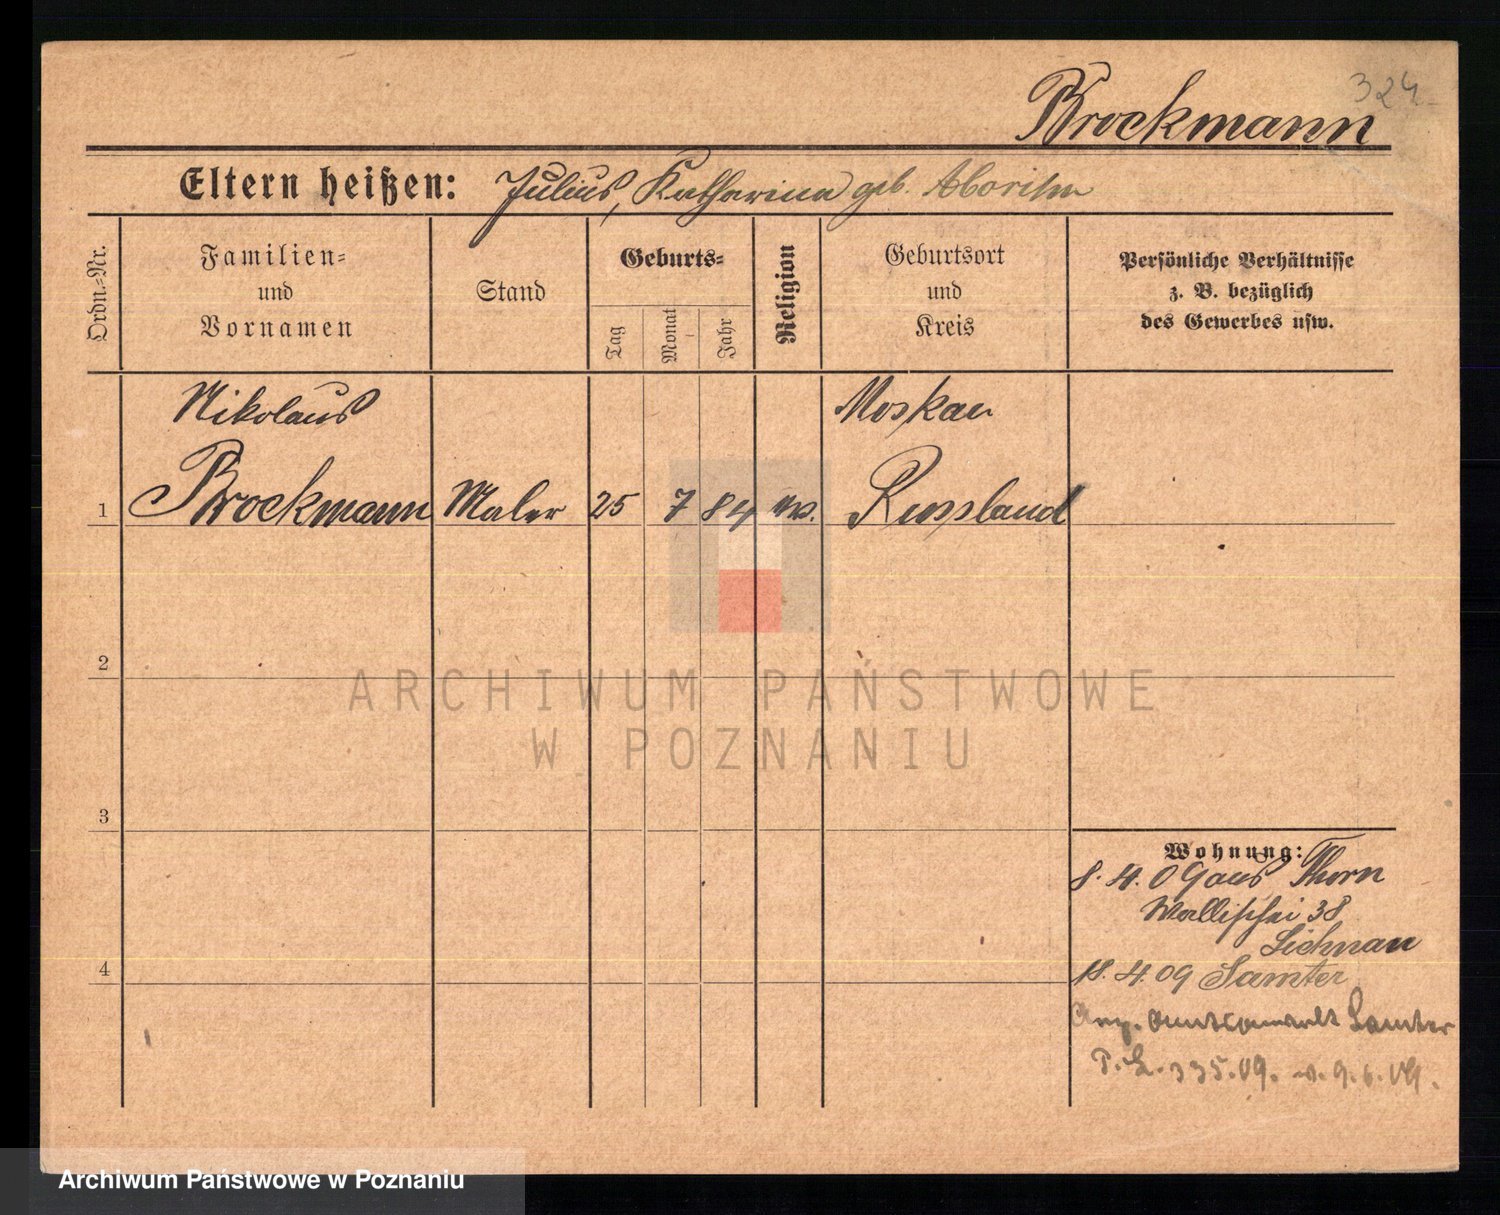 324
Brockmann
Eltern heißen: Julius, Katharina geb.
Ordn.-Nr.
Familien-
und
Vornamen
Stand
Geburts-
Tag
Monat
Jahr
Religion
Geburtsort
und
Kreis
Persönliche Verhältnisse
z. B. bezüglich
des Gewerbes usw.
Nikolaus
Moskau
1 Brockmann Maler 25 7 84 ev. Russland
2
3
4
Wohnung:
8. 4. 09 aus Thorn
Wallischei 38
Lichnau
18. 4. 09 Samter
Amtsanwalt Samter
P. L. 335.09. v. 9.6.09.
ARCHIWUM PAŃSTWOWE
W POZNANIU
Archiwum Państwowe w Poznaniu